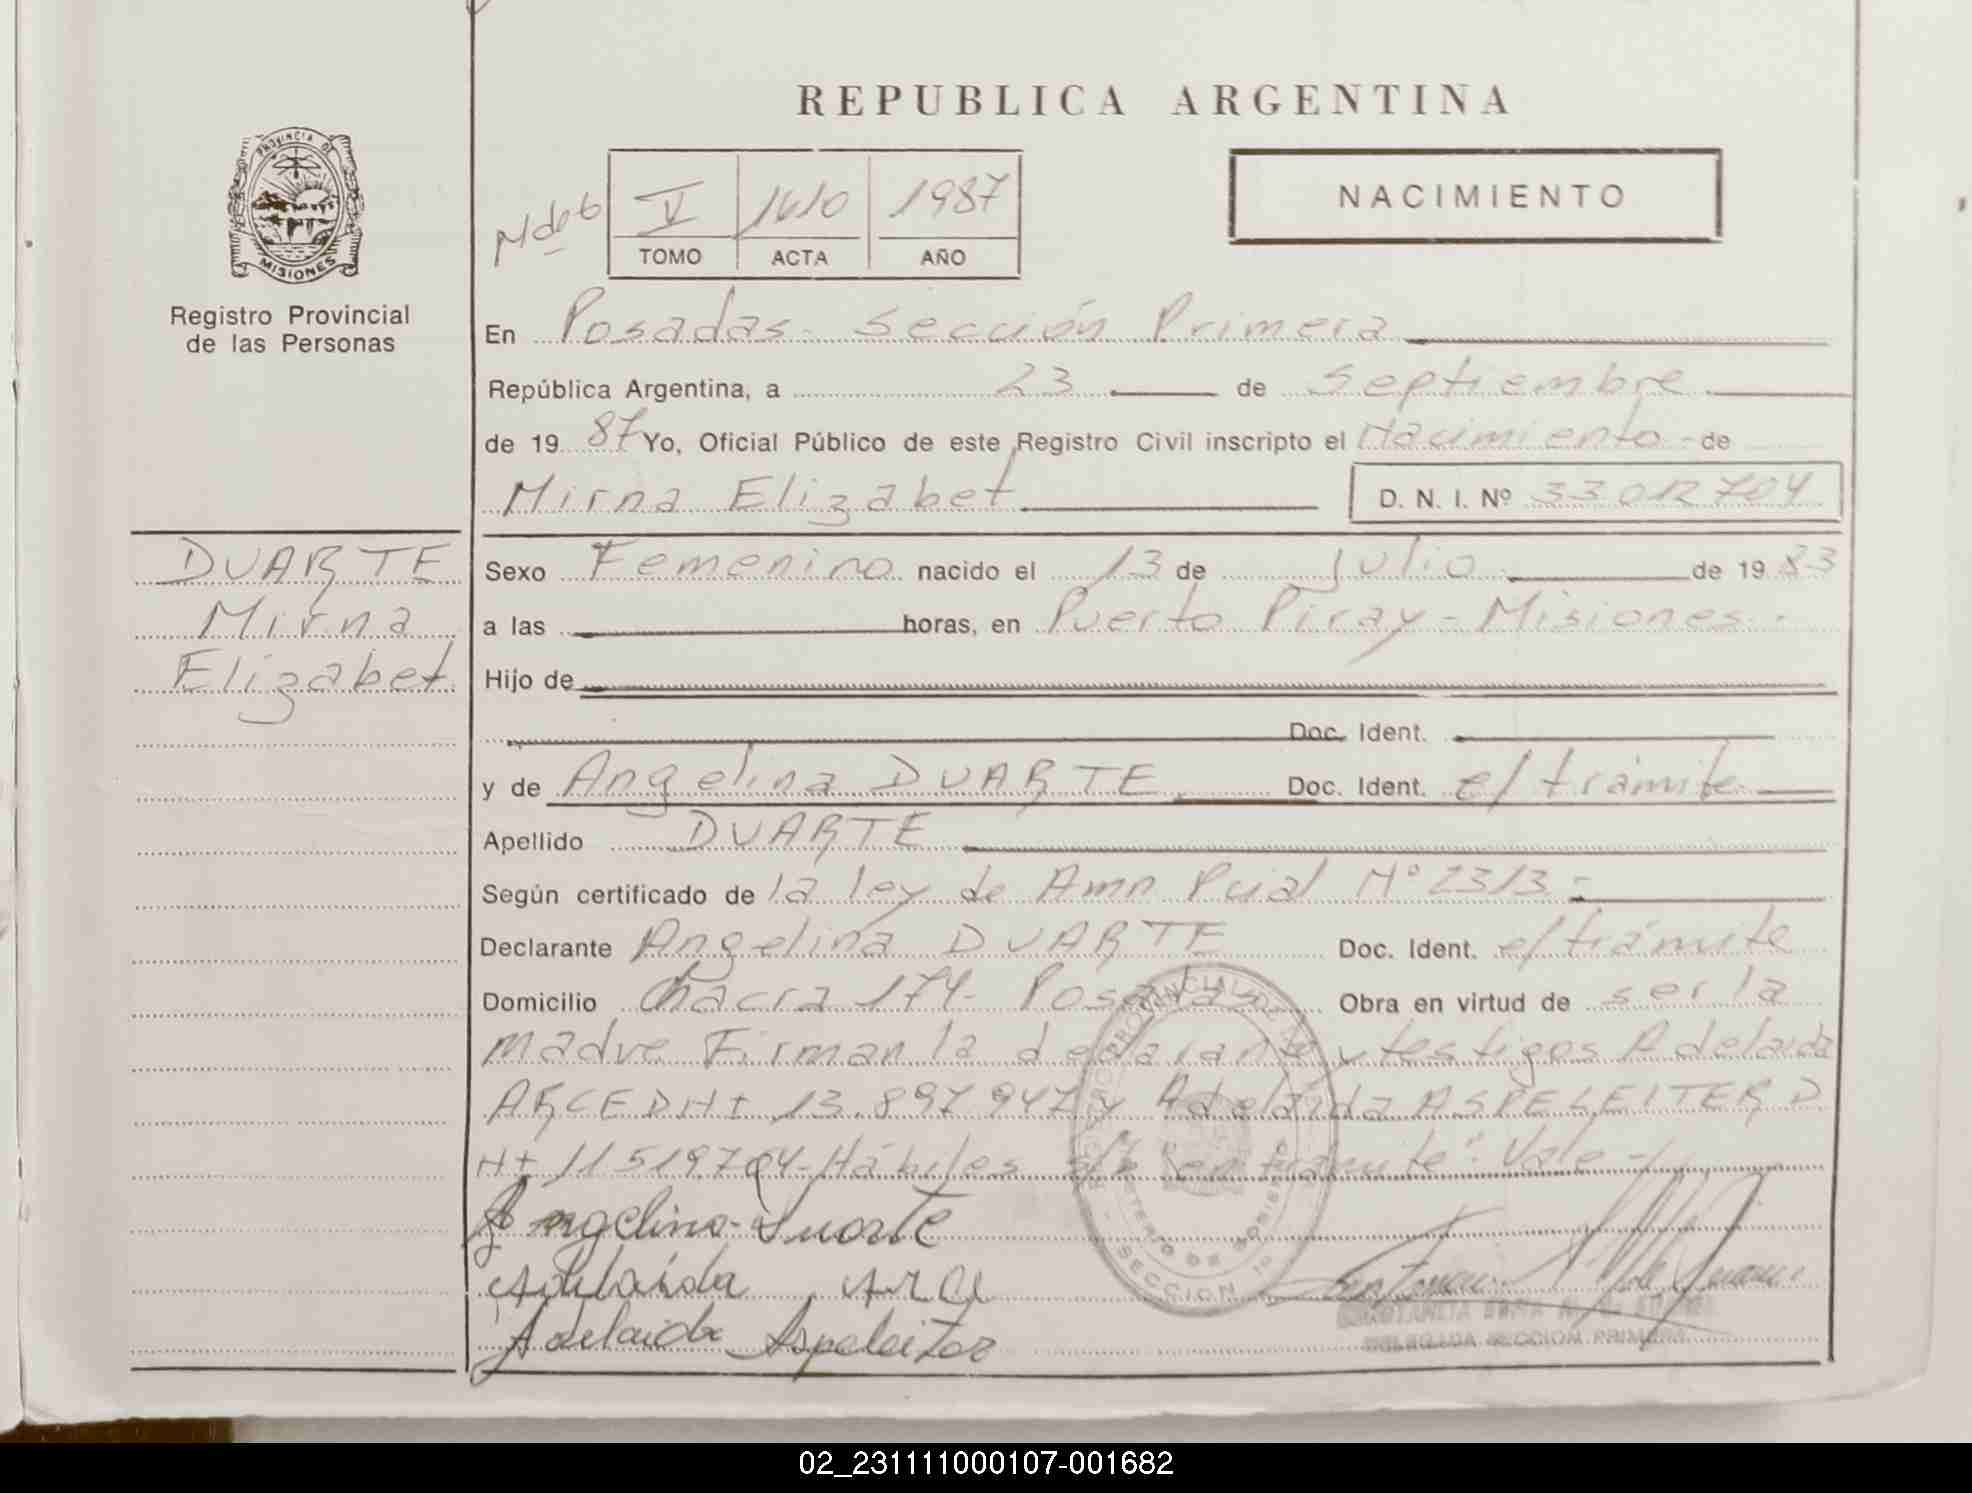 REPUBLICA ARGENTINA
PROVINCIA DE
MISIONES
Registro Provincial
de las Personas
V 1610 1987
TOMO ACTA AÑO
NACIMIENTO
En Posadas- Sección Primera
República Argentina, a 23 de Septiembre
de 19 87 Yo, Oficial Público de este Registro Civil inscripto el Nacimiento - de
Mirna Elizabet D. N. I. Nº 33 012 704
DUARTE
Mirna
Elizabet
Sexo Femenino nacido el 13 de Julio de 19 83
a las horas, en Puerto Piray - Misiones-
Hijo de
Doc. Ident.
y de Angelina DUARTE Doc. Ident. e/ trámite
Apellido DUARTE
Según certificado de la ley de Amn Pcial Nº 2313-
Declarante Angelina DUARTE Doc. Ident. e/trámite
Domicilio Chacra 174- Posadas Obra en virtud de ser la
madre Firman la declarante y testigos Adelaida
ARCE DNI 13.897 947 y Adelaida ASPELEITER D
NI 11519704-Hábiles s/r "en trámite". Vale-
Angelina Duarte
Adelaida Arce
Adelaida Aspeleiter
SECCION 1ª
DELEGADA SECCION PRIMERA
02_231111000107-001682